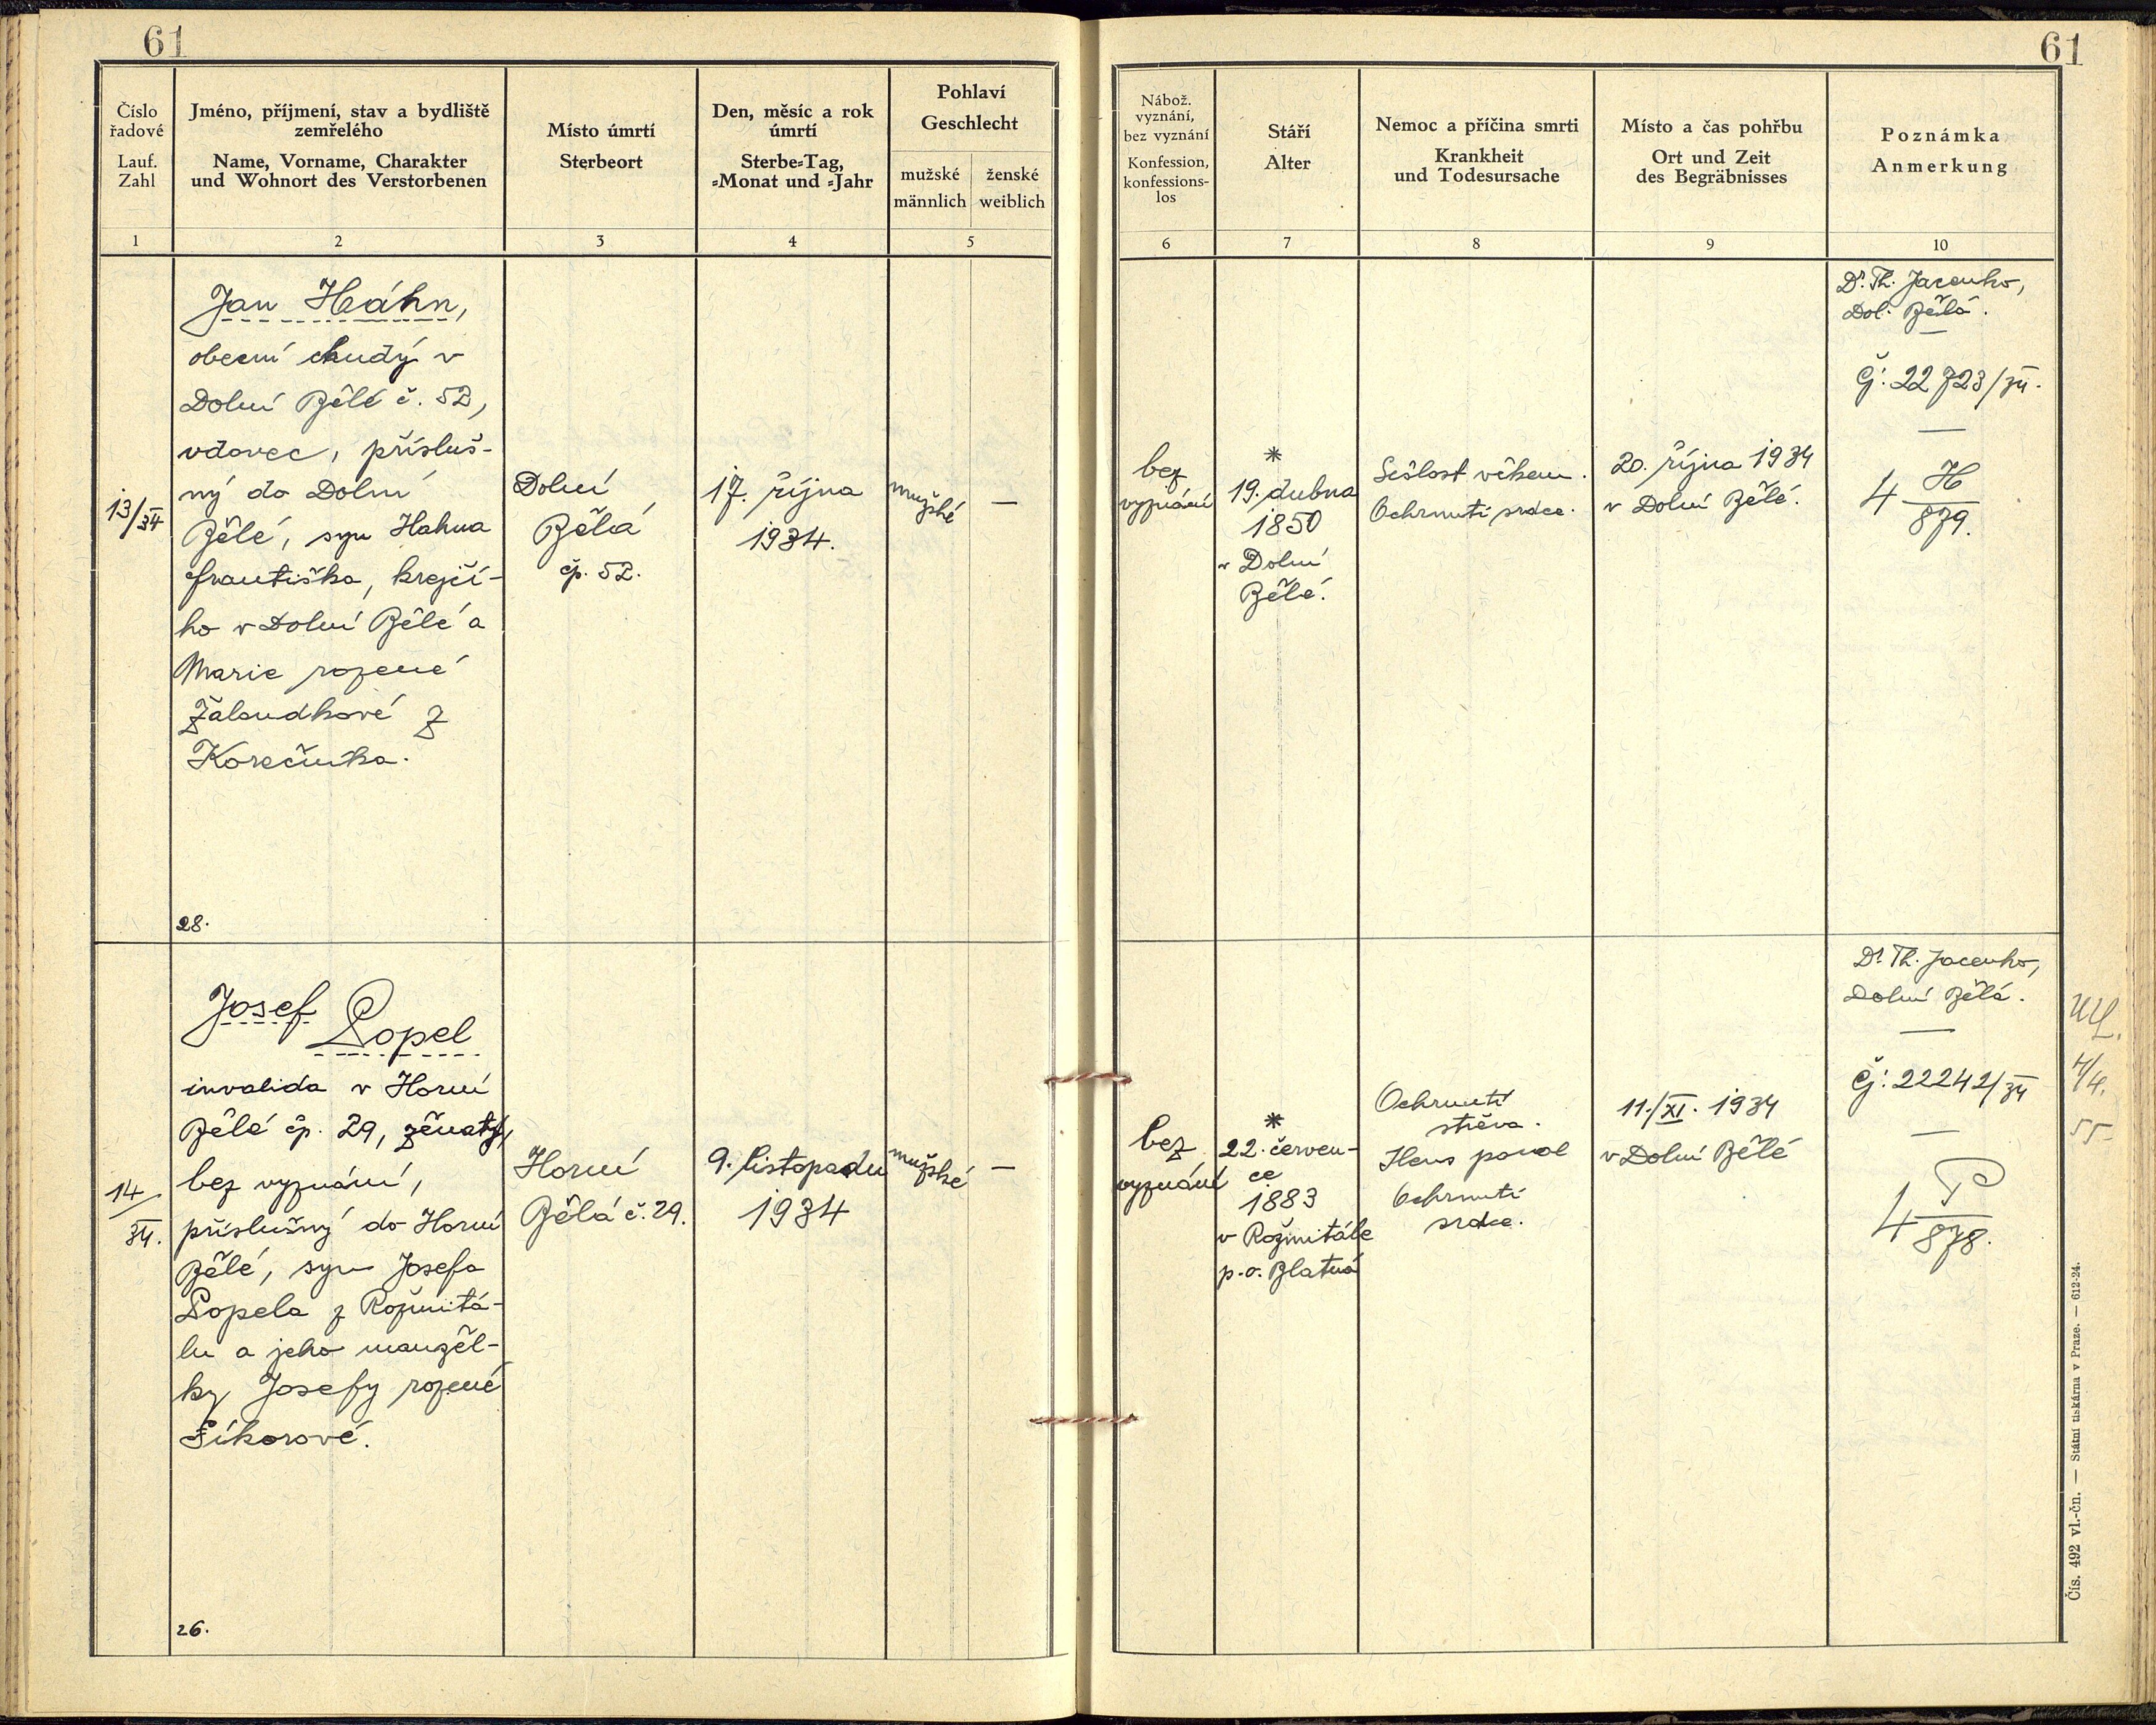 61
61
Číslo
řadové
Lauf.
Zahl
Jméno, příjmení, stav a bydliště
zemřelého
Name, Vorname, Charakter
und Wohnort des Verstorbenen
Místo úmrtí
Sterbeort
Den, měsíc a rok
úmrtí
Sterbe=Tag,
=Monat und =Jahr
Pohlaví
Geschlecht
mužské
männlich
ženské
weiblich
Nábož.
vyznání,
bez vyznání
Konfession,
konfessions-
los
Stáří
Alter
Nemoc a příčina smrti
Krankheit
und Todesursache
Místo a čas pohřbu
Ort und Zeit
des Begräbnisses
Poznámka
Anmerkung
1
2
3
4
5
6
7
8
9
10
13/34
Jan Háhn,
obecní chudý v
Dolní Bělé č. 52,
vdovec, přísluš-
ný do Dolní
Bělé, syn Hahna
Františka, krejčí-
ho v Dolní Bělé a
Marie rozené
Žaloudkové z
Korečníka.
28.
Dolní
Bělá
čp. 52.
17. října
1934.
mužské
—
bez
vyznání
*
19. dubna
1850
v Dolní
Bělé.
Sešlost věkem.
Ochrnutí srdce.
20. října 1934
v Dolní Bělé.
Dr. Th. Jacenko,
Dol. Bělá.
Čj: 22723/34.
4 H
879.
14/
34.
Josef Popel
invalida v Horní
Bělé čp. 29, ženatý,
bez vyznání,
příslušný do Horní
Bělé, syn Josefa
Popela z Rožmitá-
lu a jeho manžel-
ky Josefy rozené
Síkorové.
26.
Horní
Bělá č. 29.
9. listopadu
1934
mužské
—
bez
vyznání
*
22. červen-
ce
1883
v Rožmitále
p. o. Blatná
Ochrnutí
střeva.
Ileus paral
Ochrnutí
srdce.
11./XI. 1934
v Dolní Bělé
Dr. Th. Jacenko,
Dolní Bělá.
Čj: 22242/34
4 P
878.
4/4.
55
Čís. 492 vl.-čn. — Státní tiskárna v Praze. — 612-24.